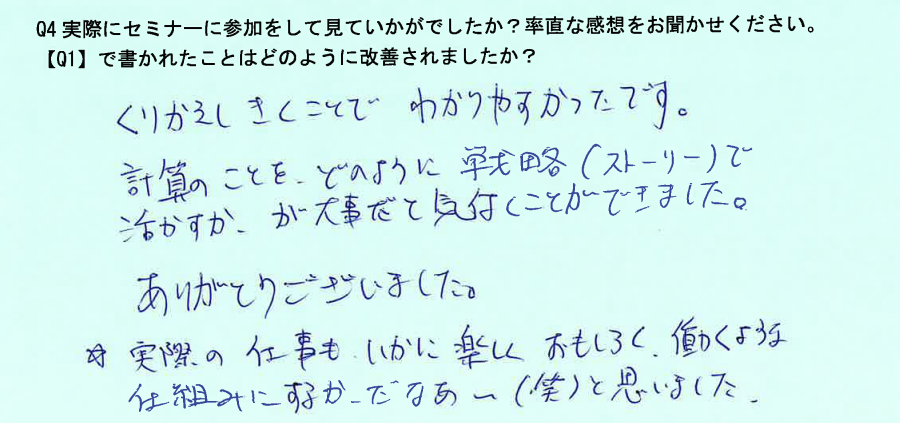 Q4 実際にセミナーに参加をして見ていかがでしたか？率直な感想をお聞かせください。
【Q1】で書かれたことはどのように改善されましたか？
くりかえし きくことで わかりやすかったです。
計算のことを、どのように 戦略（ストーリー）で
活かすか、が大事だと気付くことができました。
ありがとうございました。
☆ 実際の 仕事も、いかに 楽しく おもしろく、働くような
仕組みにするか、だなあ～（笑）と思いました。